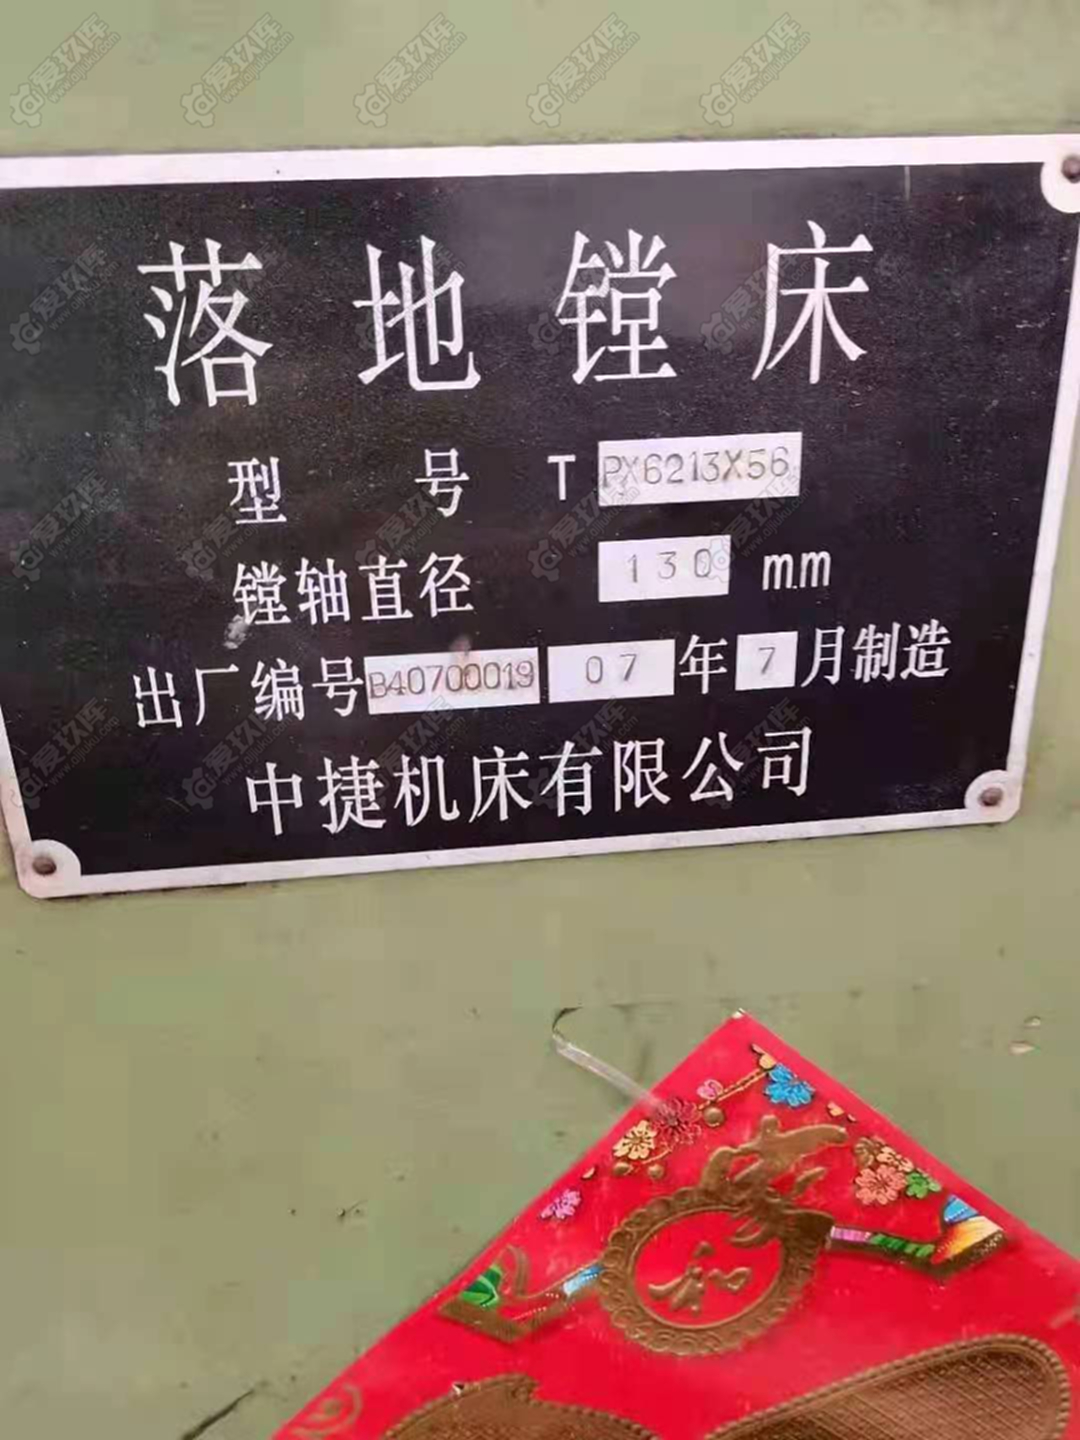 落地镗床
型号 T PX6213X56
镗轴直径 130 mm
出厂编号 B40700019 07 年 7 月制造
中捷机床有限公司
和
爱玖库
www.aijiuku.com